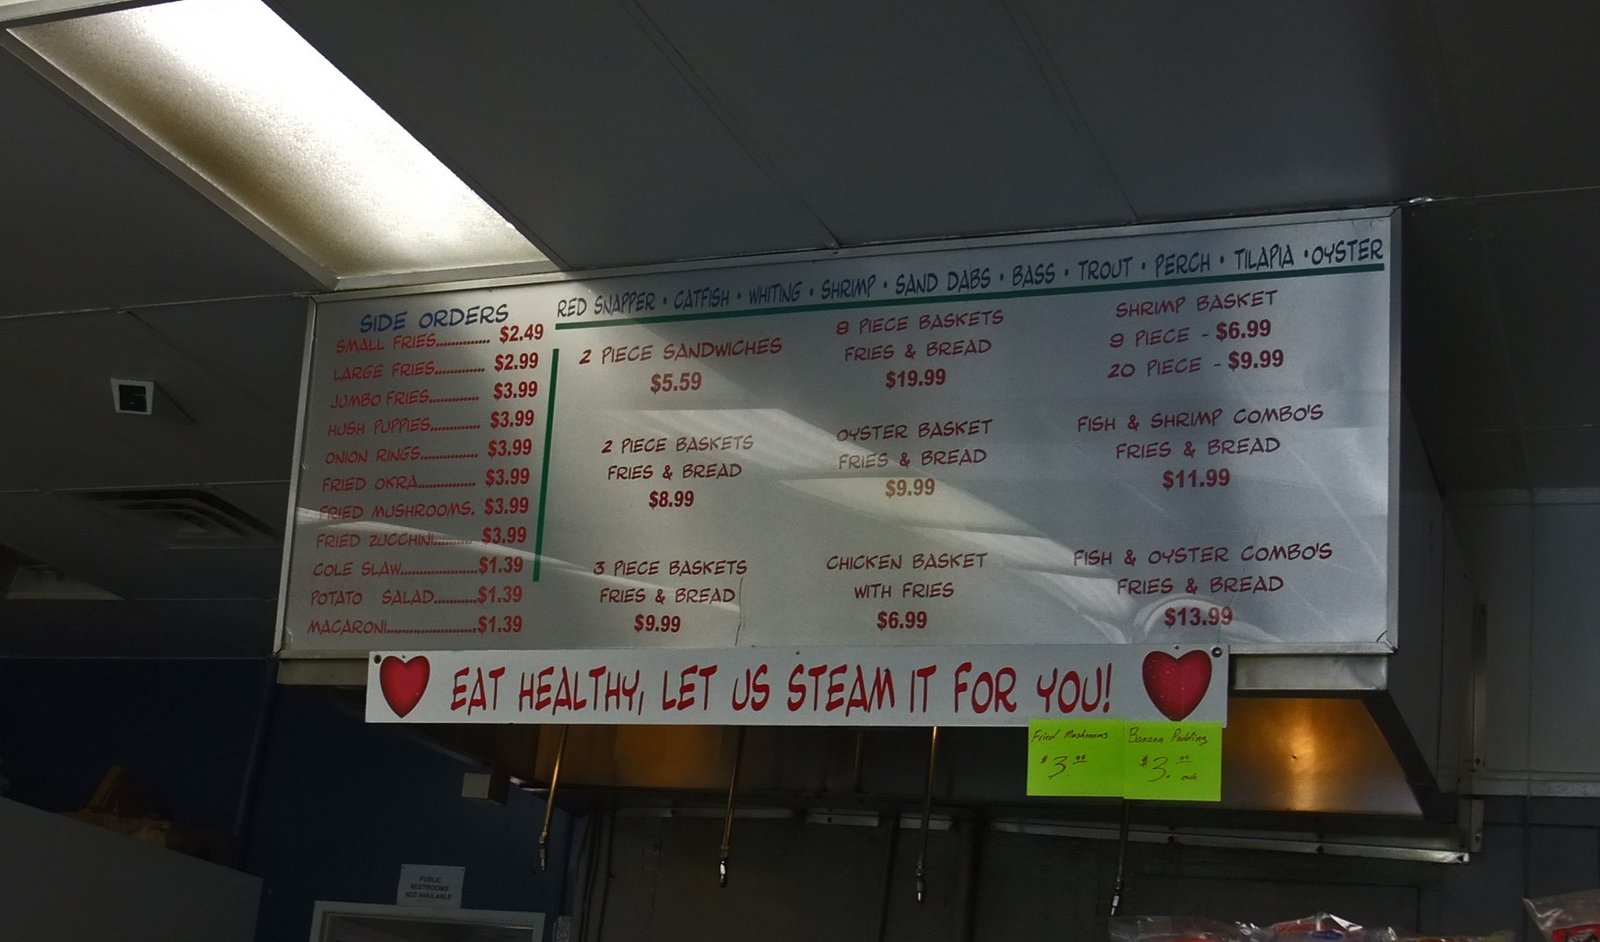 RED SNAPPER • CATFISH • WHITING • SHRIMP • SAND DABS • BASS • TROUT • PERCH • TILAPIA • OYSTER
SIDE ORDERS
SMALL FRIES.............. $2.49
LARGE FRIES............. $2.99
JUMBO FRIES............. $3.99
HUSH PUPPIES............. $3.99
ONION RINGS............... $3.99
FRIED OKRA............... $3.99
FRIED MUSHROOMS. $3.99
FRIED ZUCCHINI.......... $3.99
COLE SLAW....................$1.39
POTATO SALAD...........$1.39
MACARONI.......................$1.39
2 PIECE SANDWICHES
$5.59
2 PIECE BASKETS
FRIES & BREAD
$8.99
3 PIECE BASKETS
FRIES & BREAD
$9.99
8 PIECE BASKETS
FRIES & BREAD
$19.99
OYSTER BASKET
FRIES & BREAD
$9.99
CHICKEN BASKET
WITH FRIES
$6.99
SHRIMP BASKET
9 PIECE - $6.99
20 PIECE - $9.99
FISH & SHRIMP COMBO'S
FRIES & BREAD
$11.99
FISH & OYSTER COMBO'S
FRIES & BREAD
$13.99
EAT HEALTHY, LET US STEAM IT FOR YOU!
Fried Mushrooms
$3
Banana Pudding
$3.
each
PUBLIC
RESTROOMS
NOT AVAILABLE